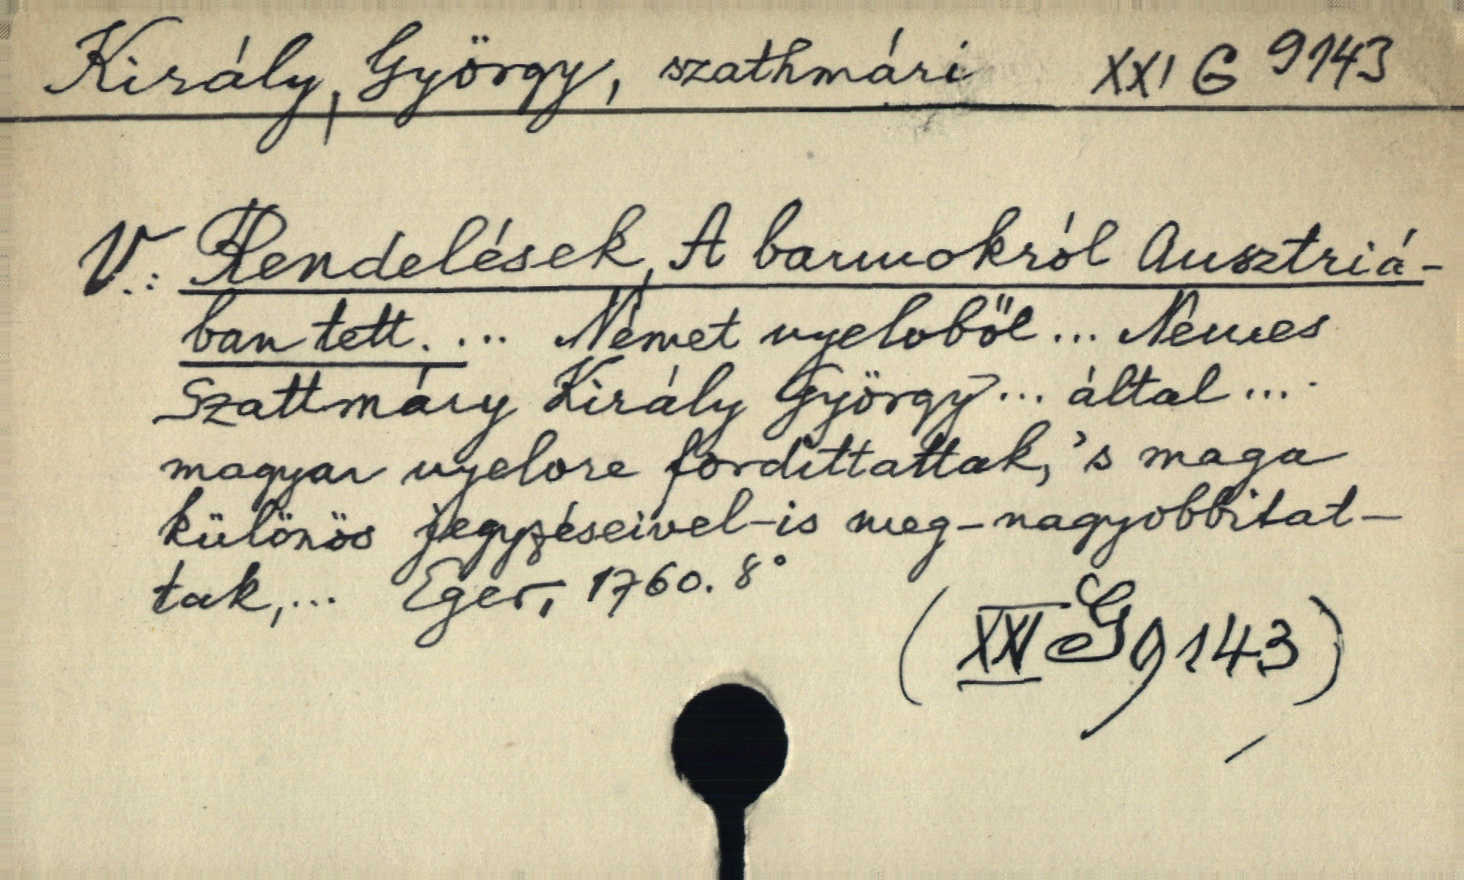 Király, György, szathmári XXI G 9143
V.: Rendelések, A barmokról Ausztriá-
ban tett. ... Német nyelvből ... Nemes
Szattmáry Király György ... által ...
magyar nyelvre fordittattak, 's maga
különös jegyzéseivel-is meg-nagyobbitat-
tak, ... Eger, 1760. 8°
(XXI G 9143)